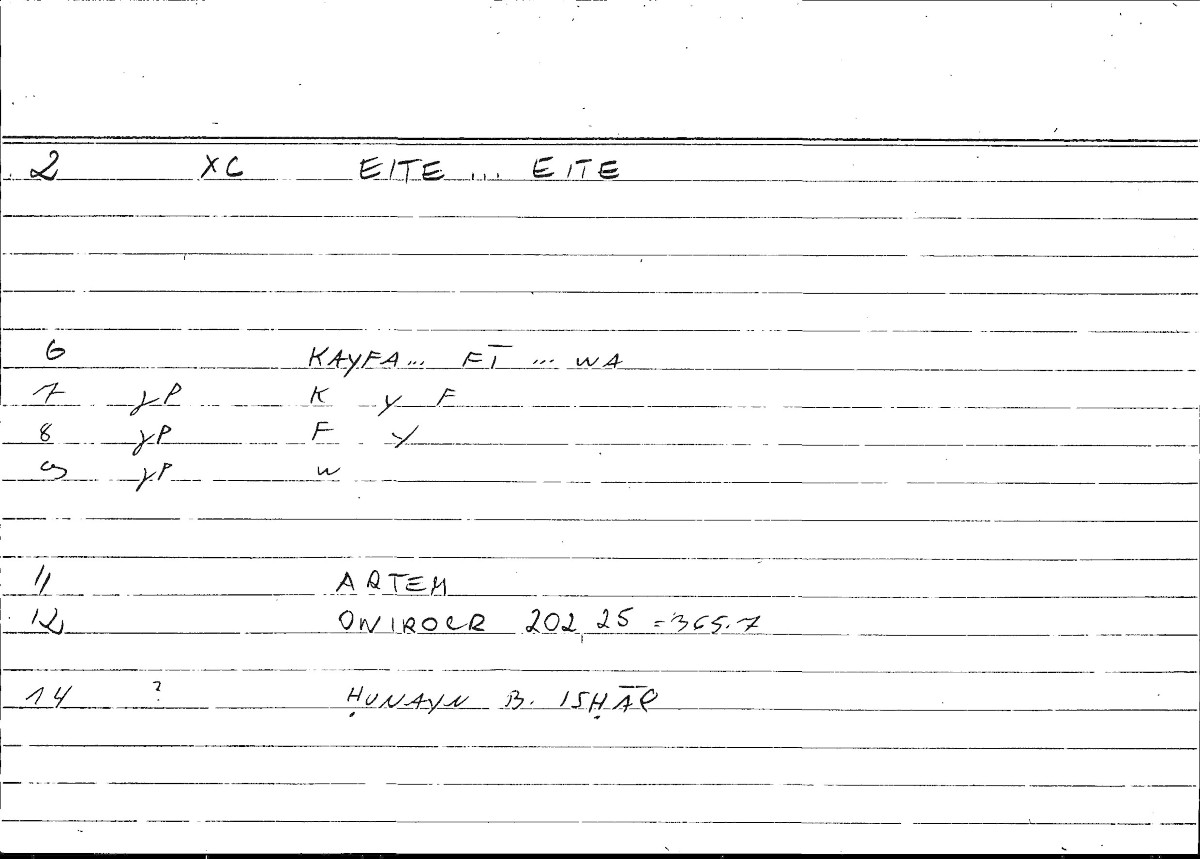 2 XC EITE ... EITE
6 KAYFA... FĪ ... WA
7 γP K y F
8 γP F y
9 γP W
11 ARTEM
12 ONIROCR 202,25 = 365.7
14 ? ḤUNAYN B. ISḤĀQ